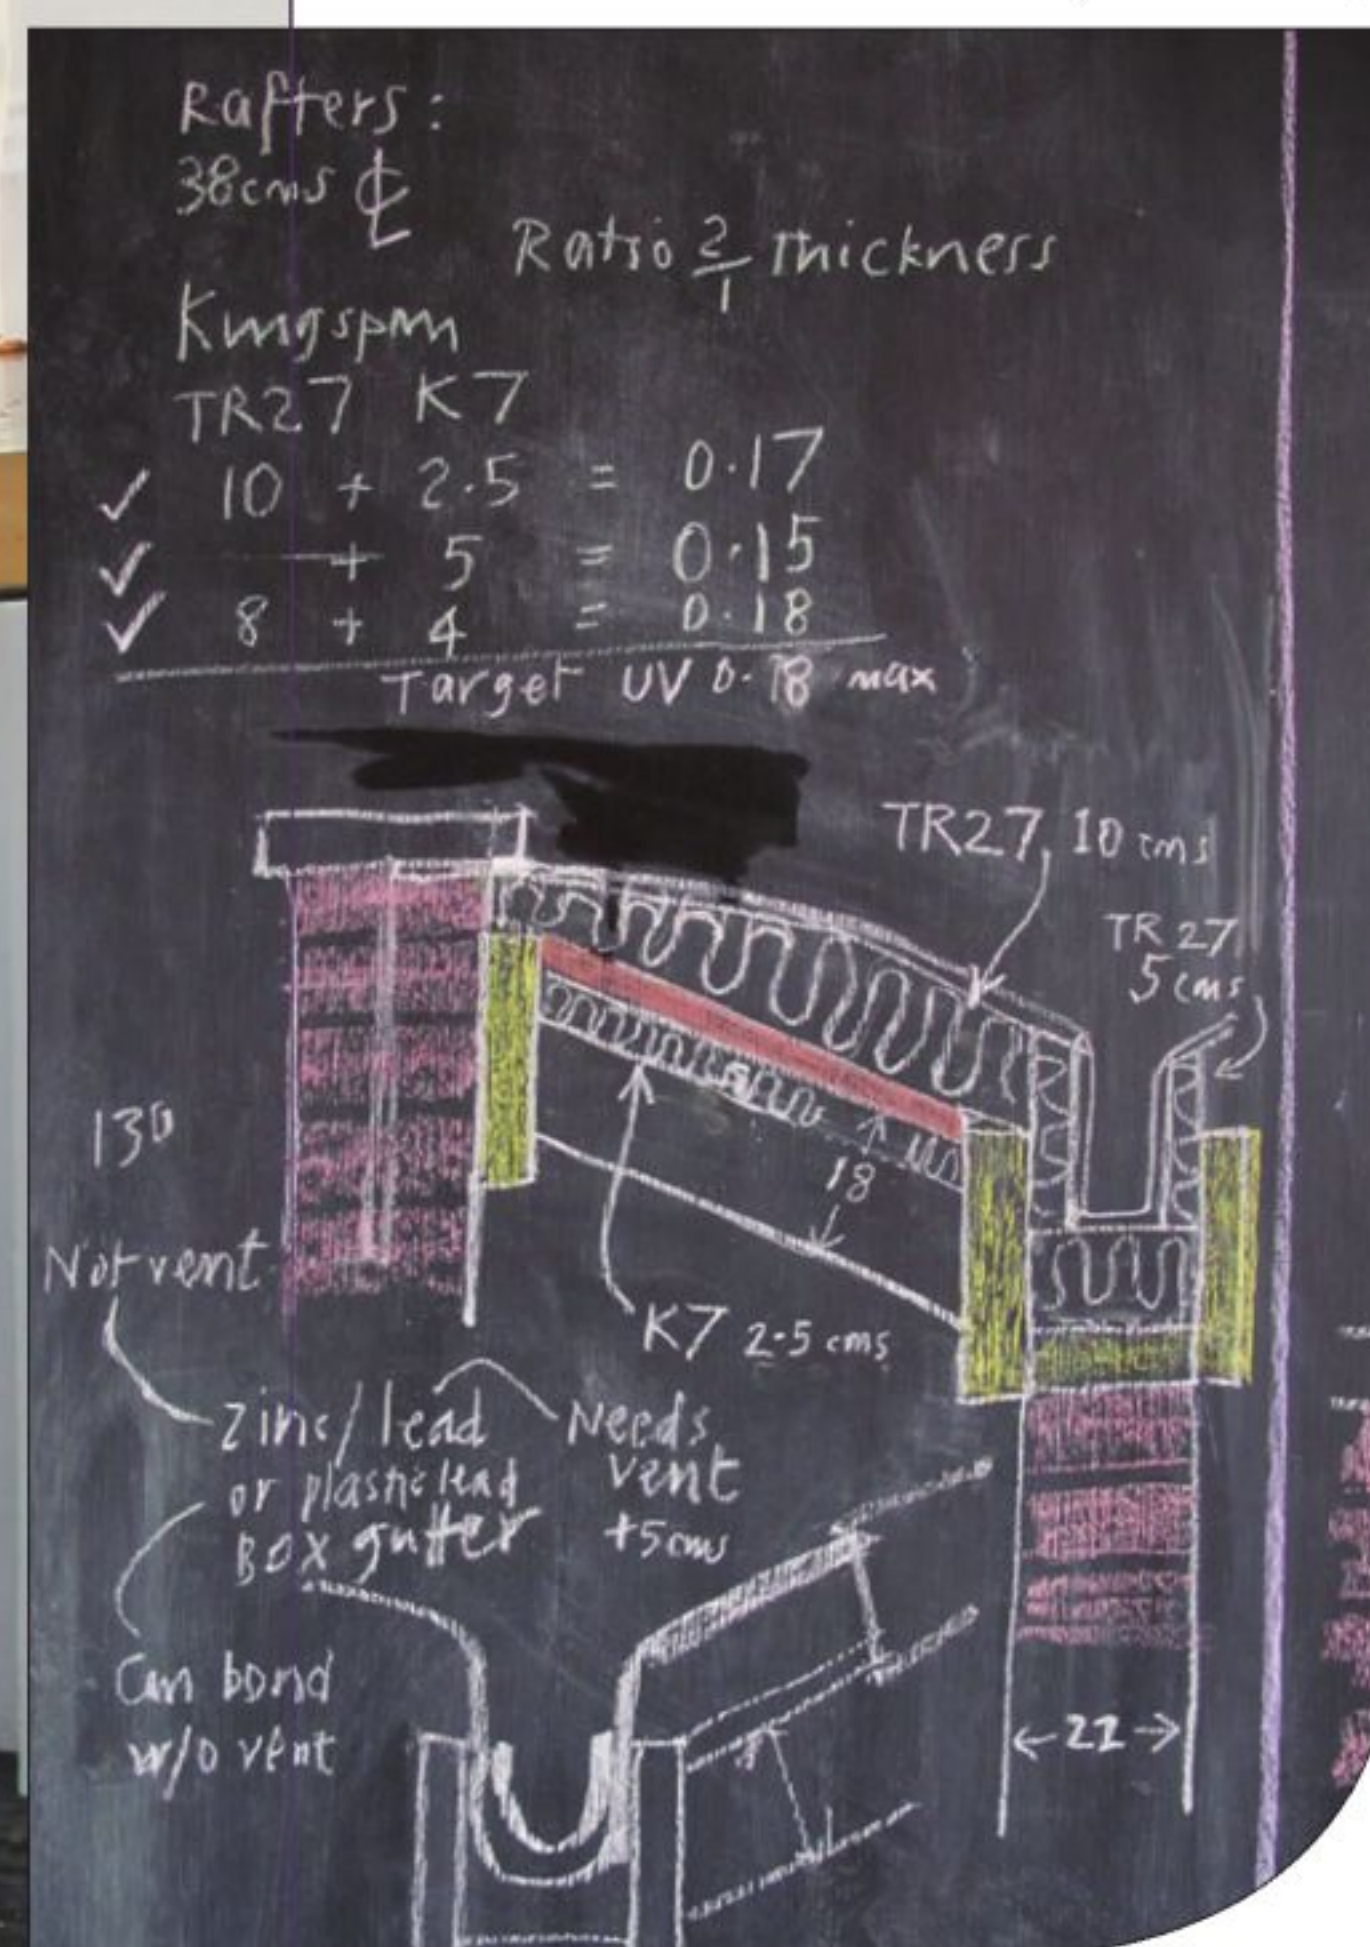 Rafters:
38cms ℄
Ratio 2/1 thickness
Kingspan
TR27 K7
✓ 10 + 2.5 = 0.17
✓ — + 5 = 0.15
✓ 8 + 4 = 0.18
Target UV 0.18 max
TR27 10 cms
TR 27
5 cms
130
18
Not vent
K7 2.5 cms
Zinc/lead
or plastic lead
BOX gutter
Needs
vent
+5cms
Can bond
w/o vent
←22→